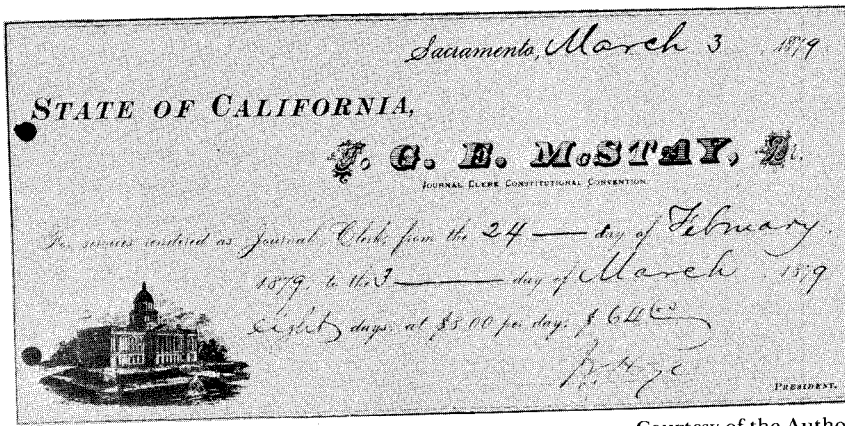 Sacramento, March 3 1879
STATE OF CALIFORNIA,
G. E. McSTAY, Dr.
JOURNAL CLERK CONSTITUTIONAL CONVENTION.
For services rendered as Journal Clerk, from the 24 day of February
1879, to the 3 day of March 1879
eight days, at $8.00 per day, $ 64 00
PRESIDENT.
Courtesy of the Autho